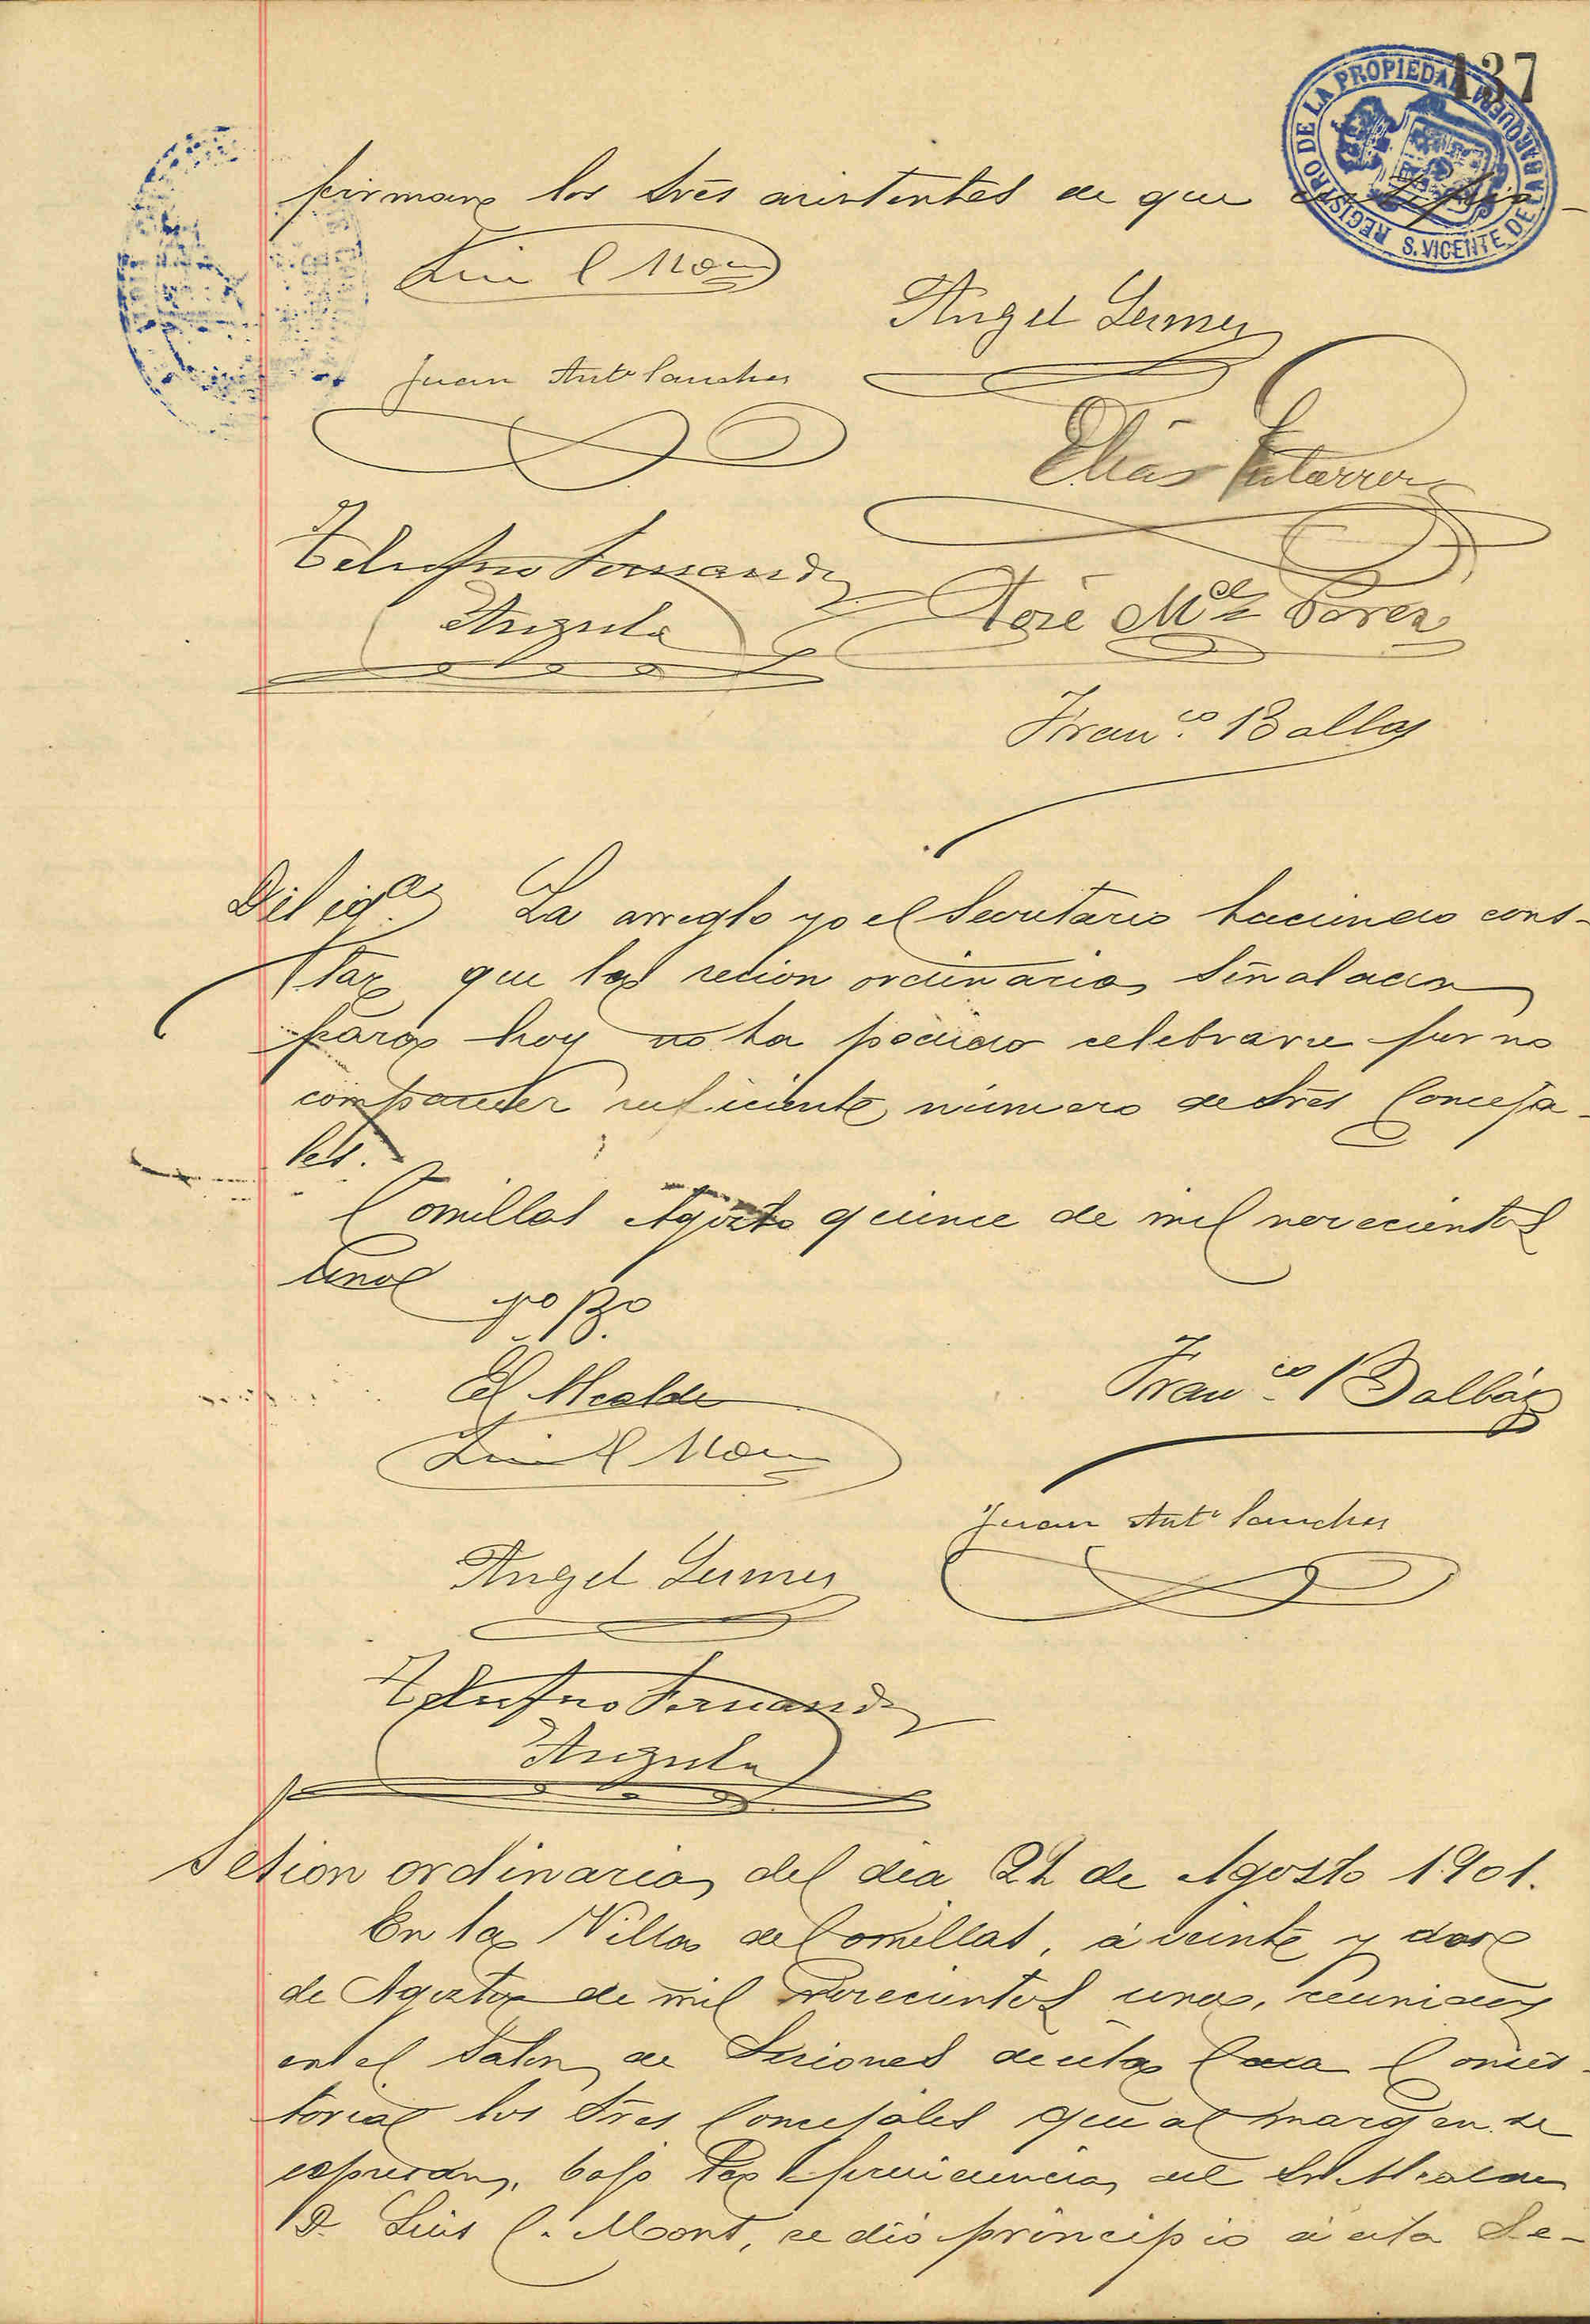 137
REGISTRO DE LA PROPIEDAD
S. VICENTE DE LA BARQUERA
firman los Sres asistentes de que certifico
Luis C Mon
Angel Gomez
Juan Antº Sanchez
Elías Gutierrez
Telesforo Fernandez
Angulo
José M Perez
Franco Balbas
Diliga La arreglo yo el Secretario haciendo cons-
tar que la sesion ordinaria señalada
para hoy no ha podido celebrarse por no
comparecer suficiente número de Sres Conceja-
les.
Comillas Agosto quince de mil novecientos
uno
Vº Bº
El Alcalde
Franco Balbás
Luis C Mon
Juan Antº Sanchez
Angel Gomez
Telesforo Fernandez
Angulo
Sesion ordinaria del dia 22 de Agosto 1901.
En la Villa de Comillas, á veinte y dos
de Agosto de mil novecientos uno, reunidos
en el Salon de Sesiones de esta Casa Consis-
torial los Sres Concejales que al margen se
expresan, bajo la presidencia del Sr Alcalde
D. Luis C. Mont, se dió principio á esta Se-